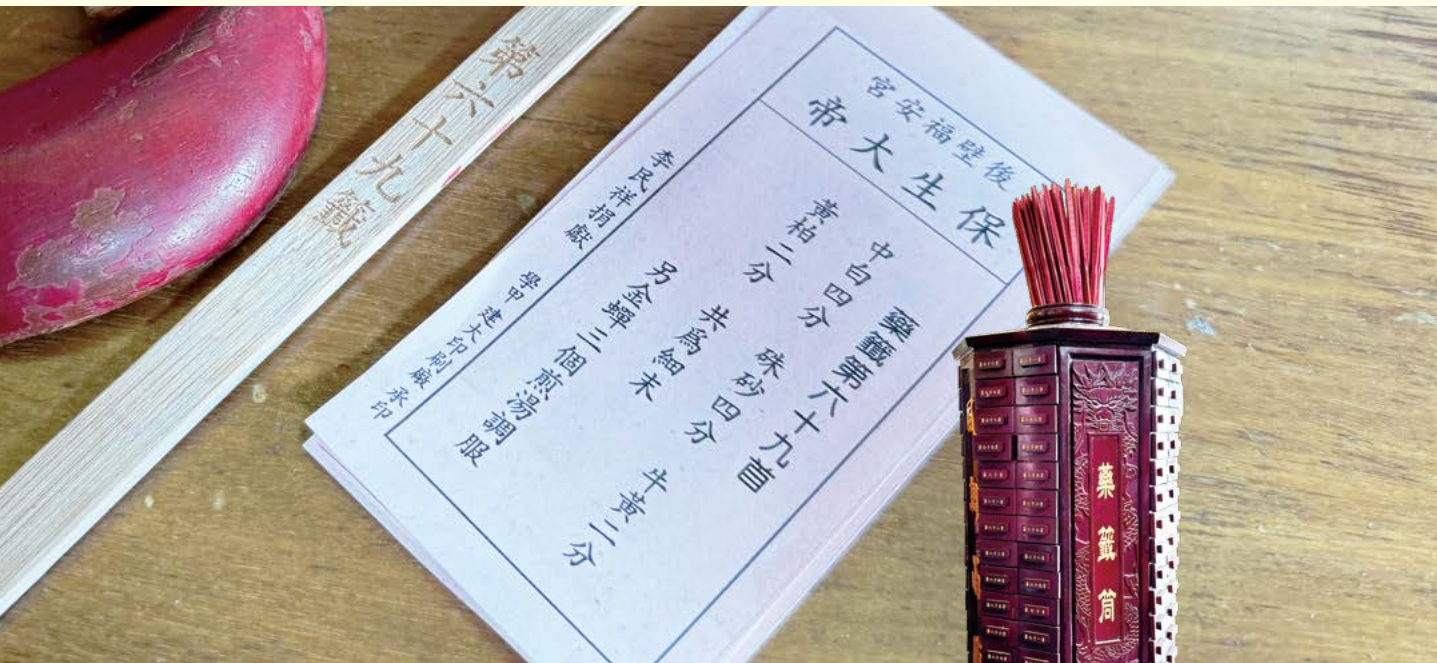 第六十九籤
後壁福安宮
保生大帝
藥籤第六十九首
中白四分 硃砂四分 牛黃二分
黃柏二分 共爲細末
另金蟬三個煎湯調服
李民祥捐獻 學甲 建大印刷廠承印
藥籤筒